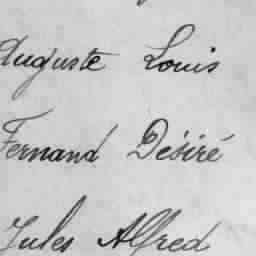 Auguste Louis
Fernand Désiré
Jules Alfred